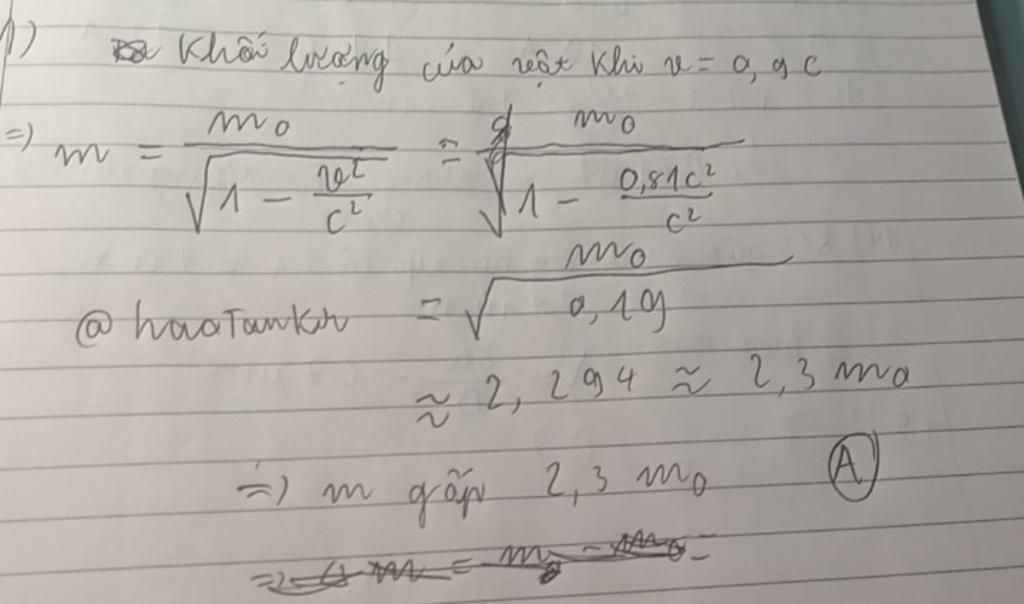 1) Khối lượng của vật khi v = 0,9 c
=) m = m₀ / √(1 - v²/c²) = m₀ / √(1 - 0,81c²/c²)
@haoTankn = m₀ / √0,19
≈ 2,294 ≈ 2,3 m₀
=) m gấp 2,3 m₀ A